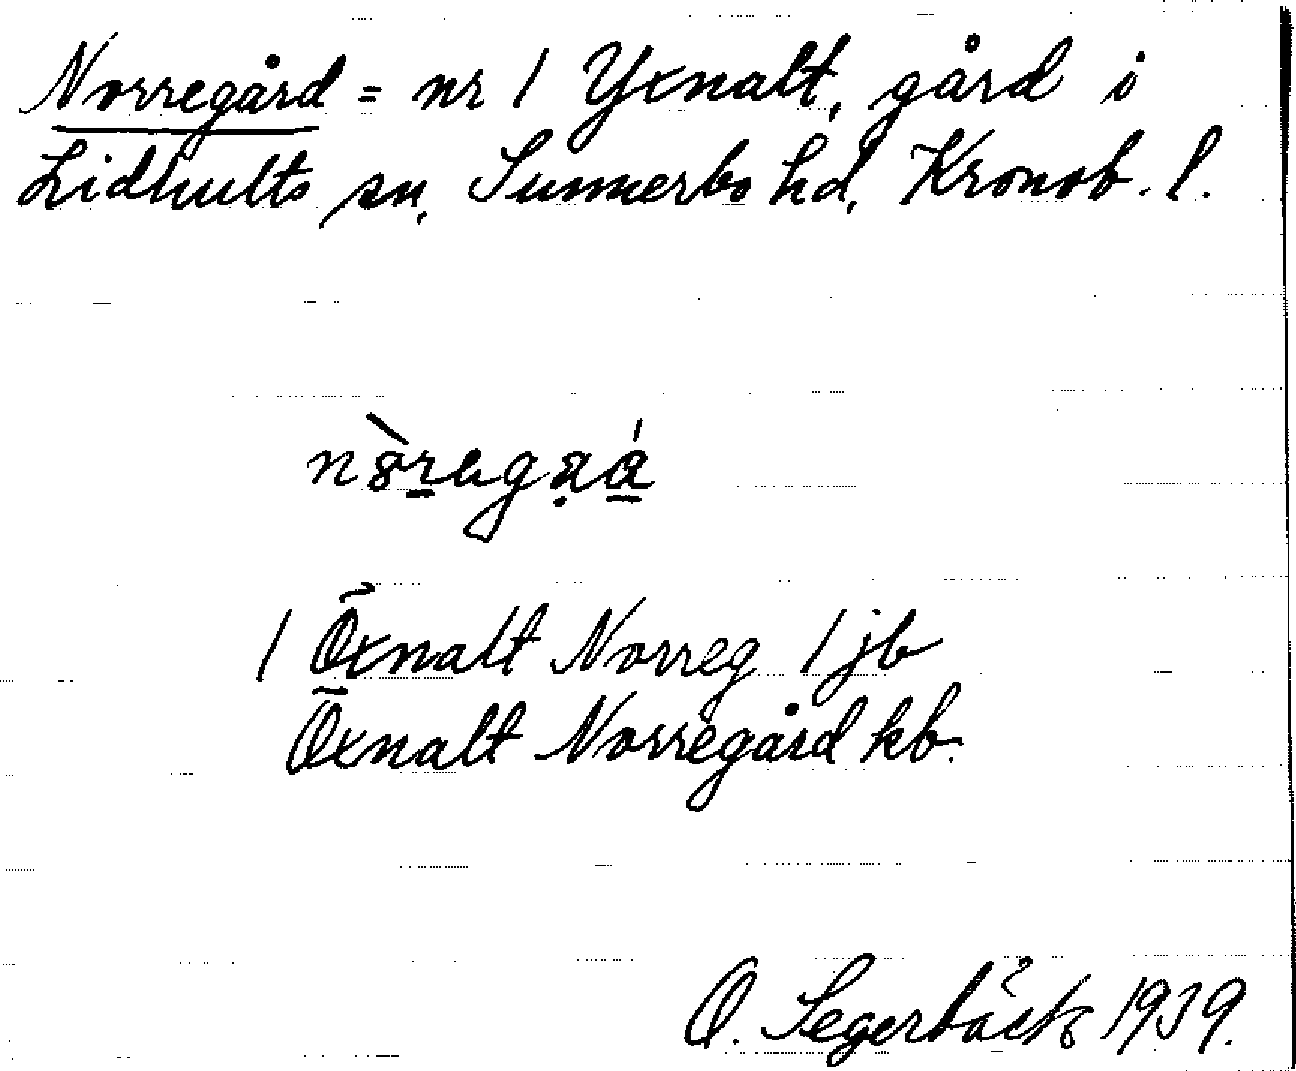 Norregård = nr 1 Yxnalt, gård i
Lidhults sn, Sunnerbo hd, Kronob. l.
1 Öxnalt Norreg 1 jb
Öxnalt Norregård kb.
O. Segerbäck 1939.